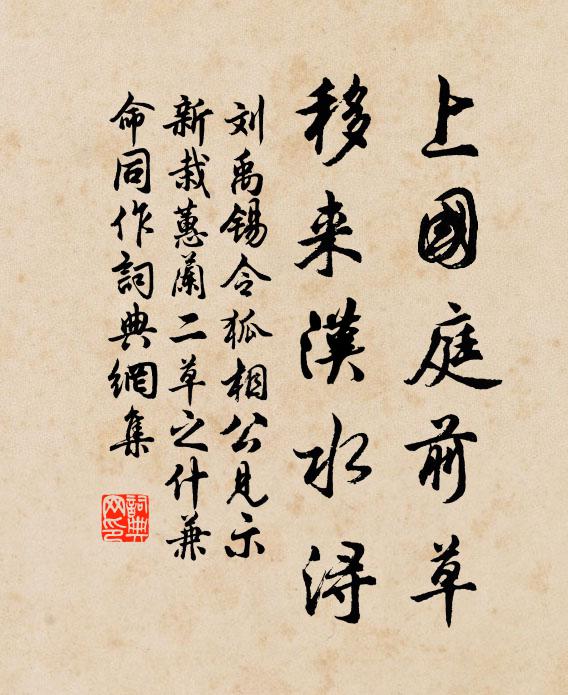 上國庭前草
移来漢水浔
刘禹錫令狐相公見示
新栽蕙蘭二草之什兼
命同作詞典網集
詞典
网印